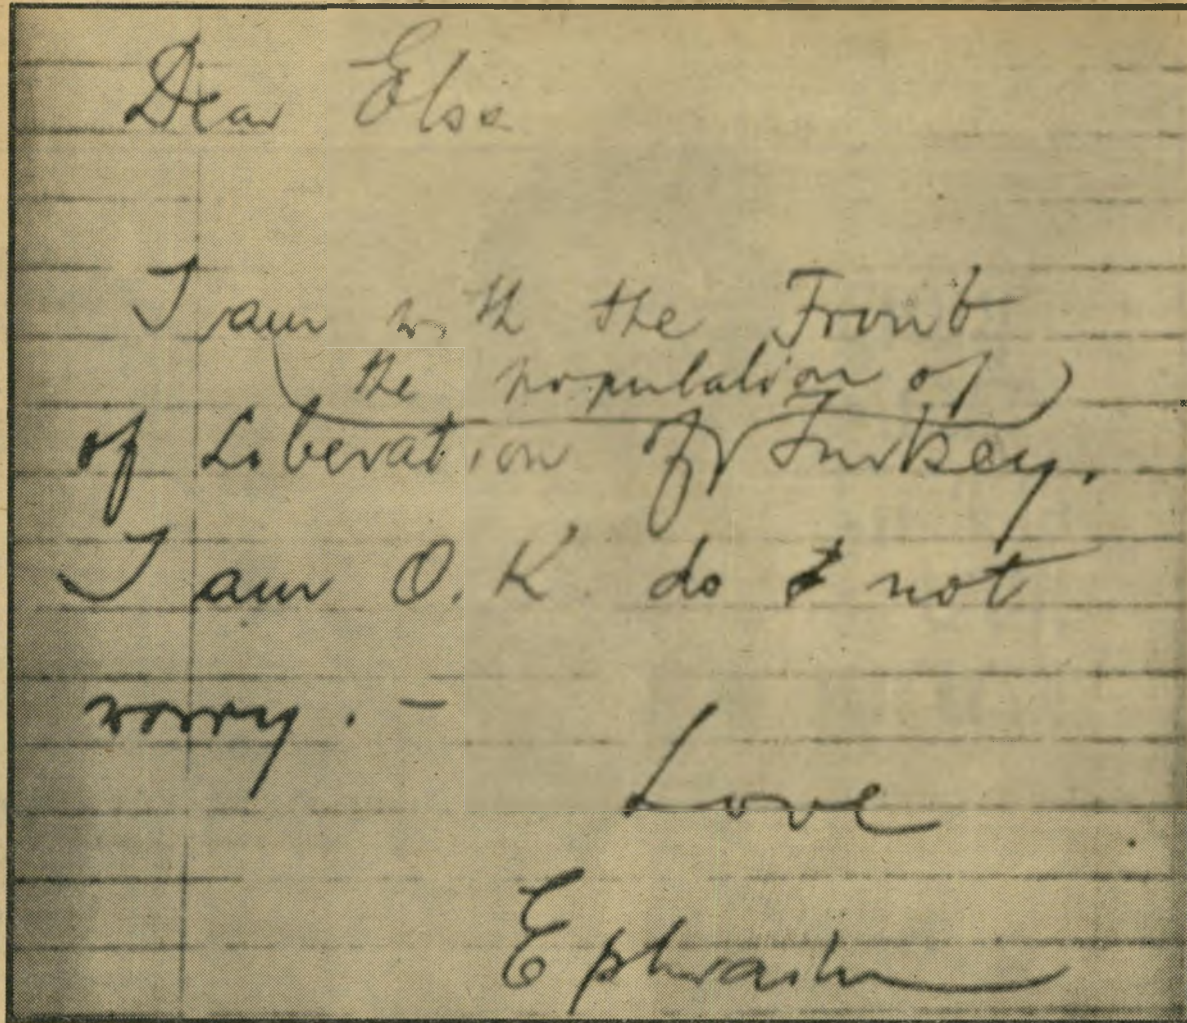 Dear Elsa
I am with the Front
the population of
of Liberation of Turkey.
I am O.K. do not
worry. -
Love
Ephraim